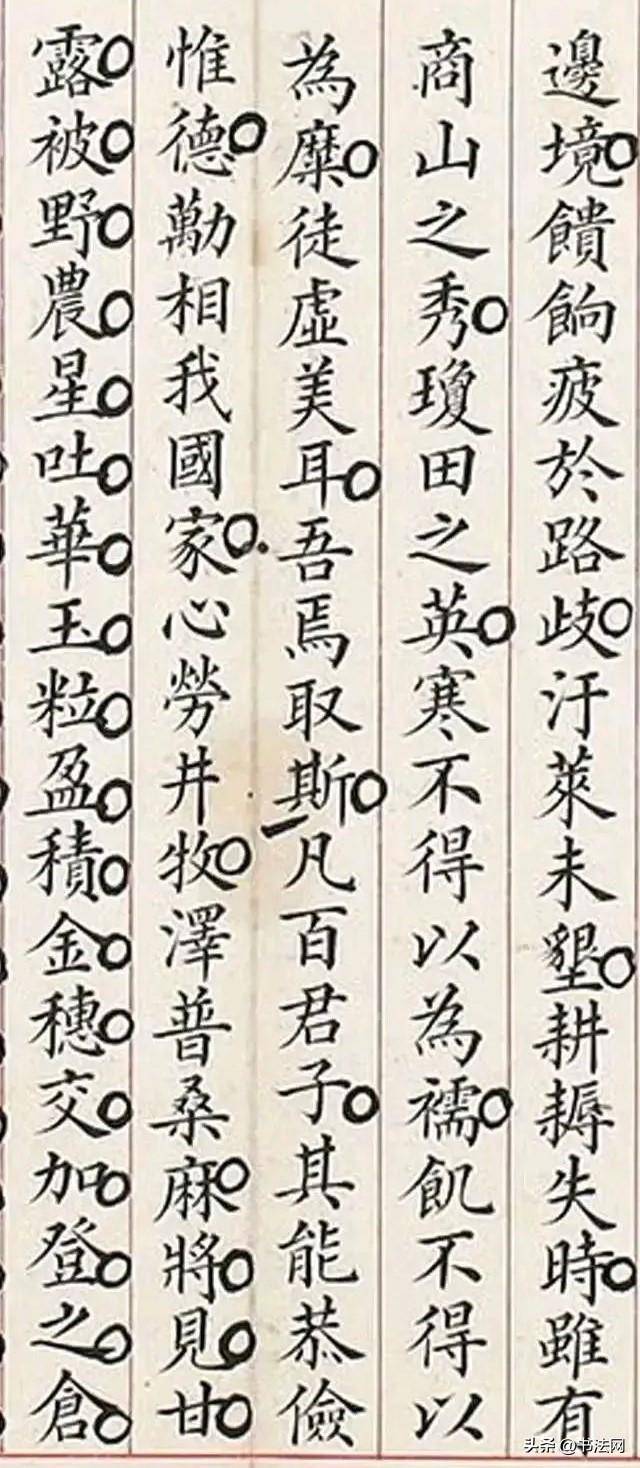 邊境饋餉疲於路歧汙萊未墾耕耨失時雖有
商山之秀瓊田之英寒不得以為襦飢不得以
為糜徒虛美耳吾焉取斯凡百君子其能恭儉
惟德勱相我國家心勞井牧澤普桑麻將見甘
露被野農星吐華玉粒盈積金穗交加登之倉
头条 @书法网